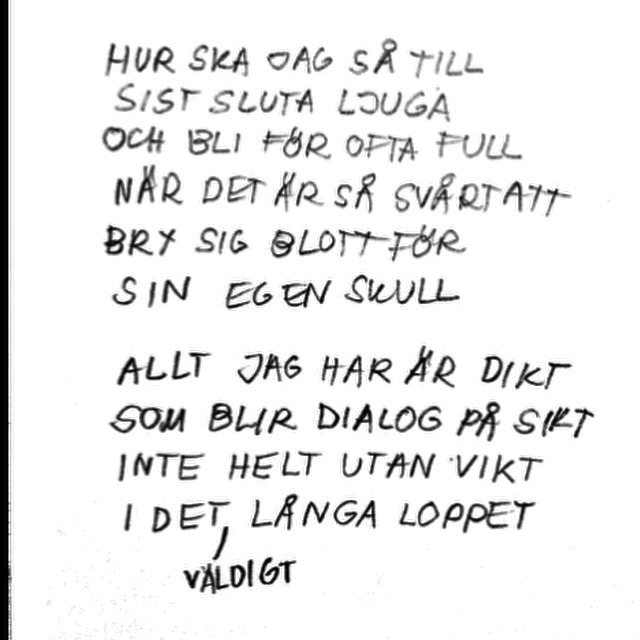 HUR SKA JAG SÅ TILL
SIST SLUTA LJUGA
OCH BLI FÖR OFTA FULL
NÄR DET ÄR SÅ SVÅRT ATT
BRY SIG BLOTT FÖR
SIN EGEN SKULL
ALLT JAG HAR ÄR DIKT
SOM BLIR DIALOG PÅ SIKT
INTE HELT UTAN VIKT
I DET, LÅNGA LOPPET
VÄLDIGT